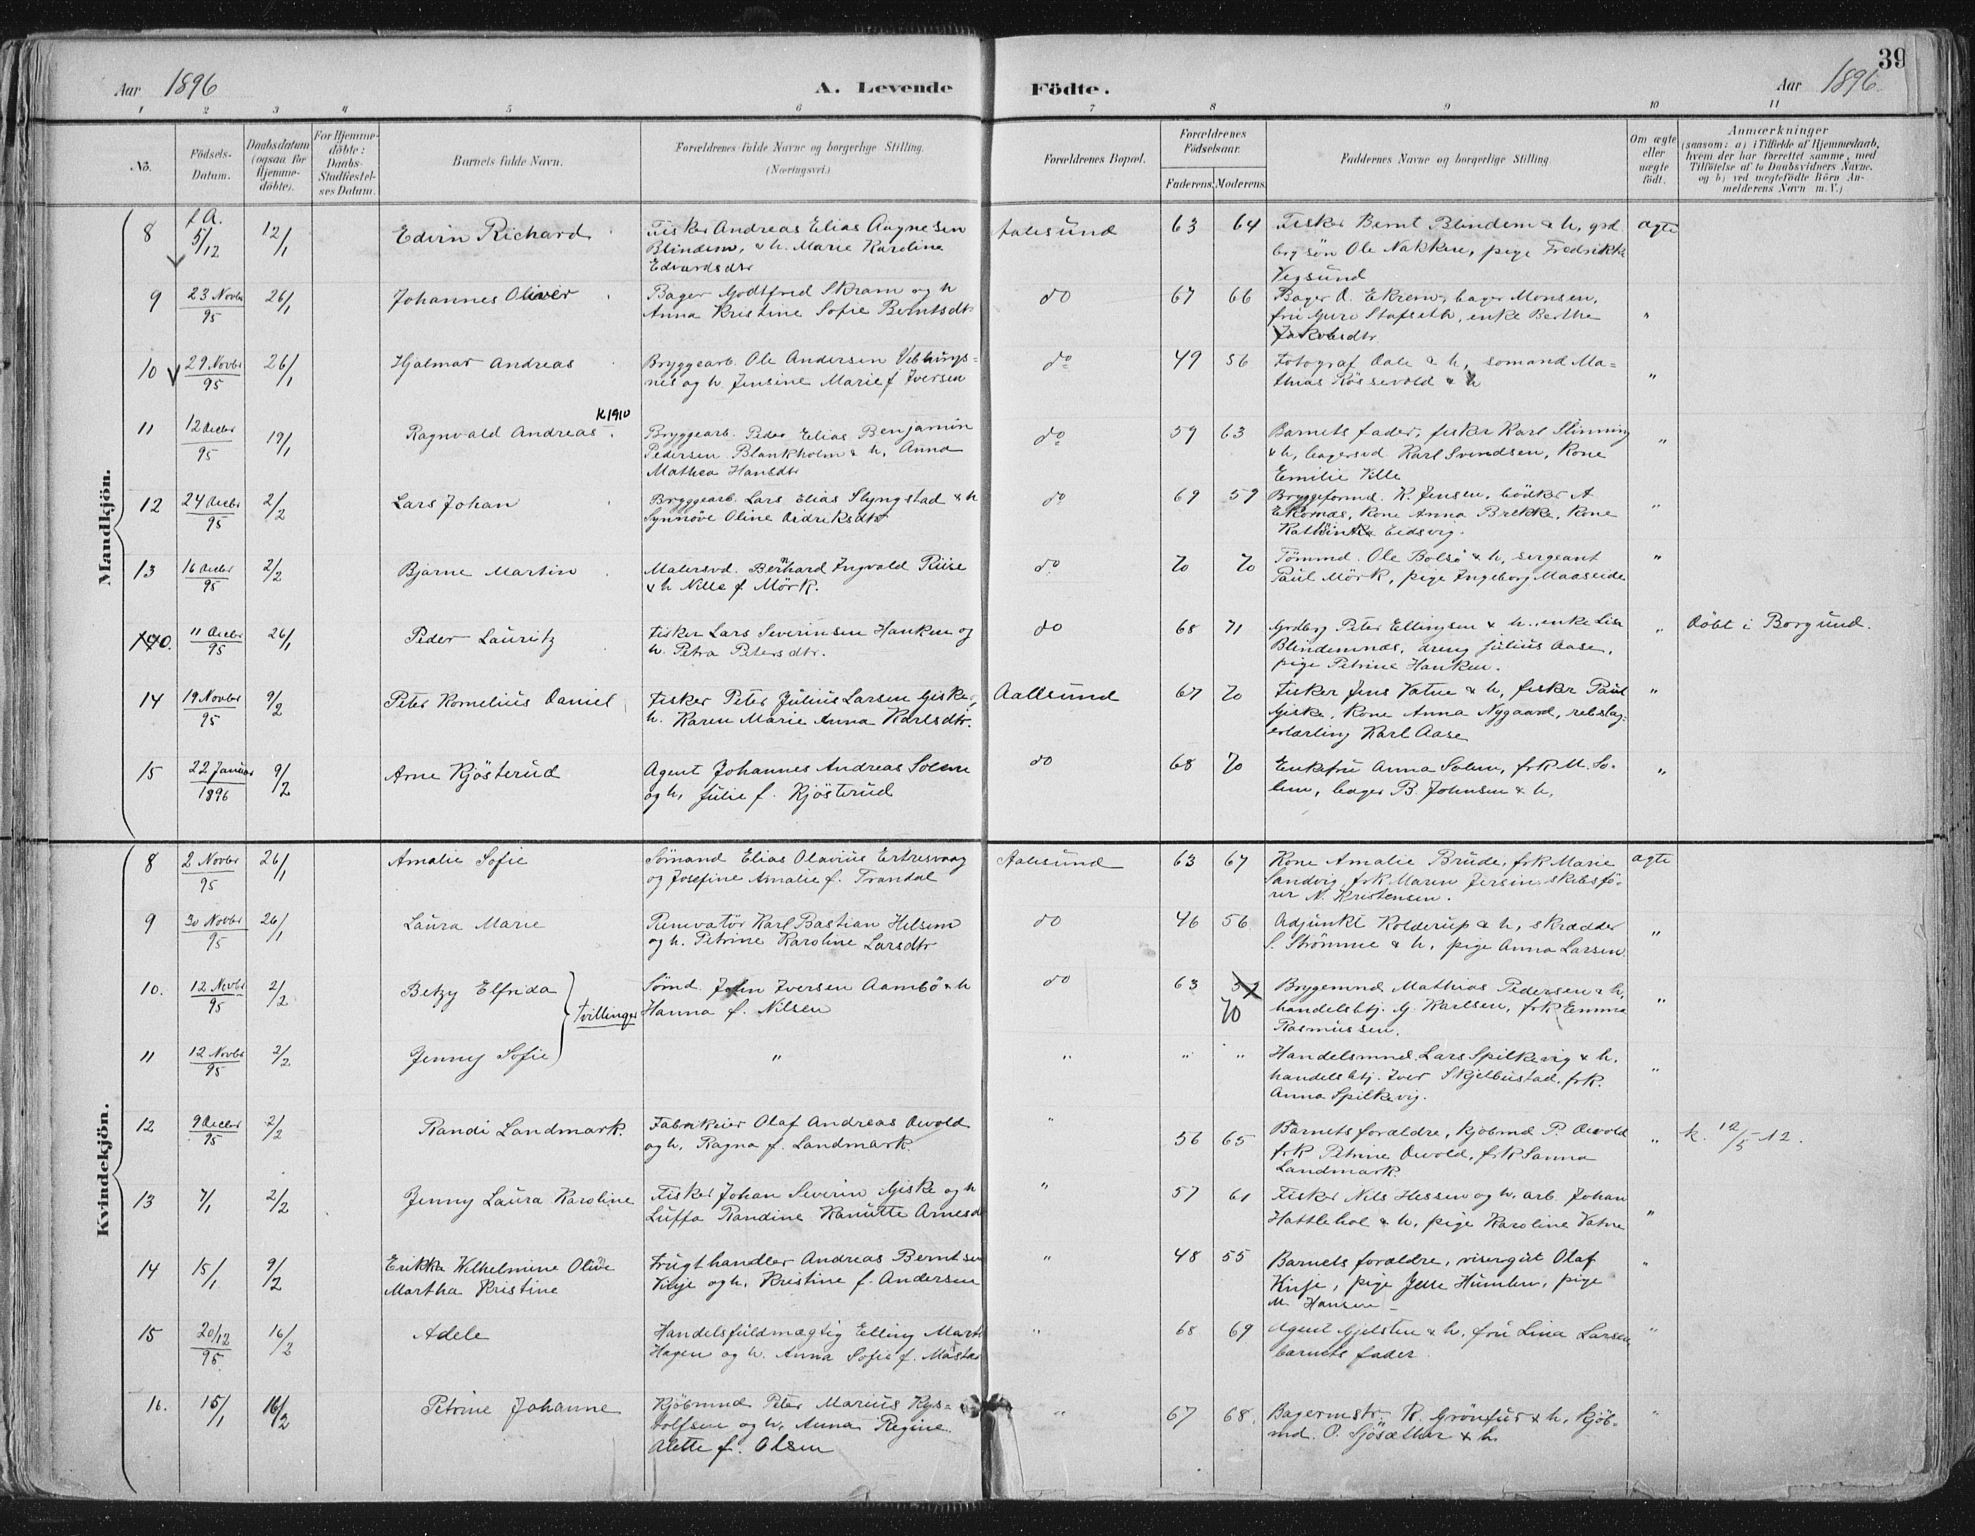 39
Aar 1896 A. Levende Födte. Aar 1896.
1 2 3 4 5 6 7 8 9 10 11
No. Födsels-Datum. Daabsdatum (ogsaa for Hjemmedöbte). For Hjemmedöbte: Daabs-Stadfæstelses Datum. Barnets fulde Navn. Forældrenes fulde Navne og borgerlige Stilling. (Næringsvei.) Forældrenes Bopæl. Forældrenes Födselsaar. Faderens. Moderens. Faddernes Navne og borgerlige Stilling Om ægte eller uægte födt. Anmærkninger (saasom: a) i Tilfælde af Hjemmedaab, hvem der har forrettet samme, med Tilföielse af to Daabsvidners Navne. og b) ved uægtefödte Börn Anmelderens Navn m. V.)
Mandkjön.
8 f A. 5/12 12/1 Edvin Richard Fisker Andreas Elias Aagnesen Aalesund 63 64 Fisker Bernt Blindem & h, grd ægte
Blindem, & h. Marie Karoline brg søn Ole Nakken, pige Fredrikke
Edvardsdtr Vegsund
9 23 Novbr 95 26/1 Johannes Oliver Bager Godtfred Skram og h do 67 66 Bager O. Ekrem, bager Monsen, "
Anna Kristine Sofie Berntsdtr fru Guro Stafseth, enke Berthe
Jakobsdtr
10 29 Novbr 95 26/1 Hjalmar Andreas Bryggearb. Ole Andersen Veblungs- do 49 56 Fotograf Aale & h, sømand Ma- "
nes og h. Jensine Marie f Iversen thias Røssevold & h
11 12 Decbr 95 19/1 Ragnvald Andreas k 1910 Bryggearb. Peder Elias Benjamin do 59 63 Barnets fader, fisker Karl Slinning "
Pedersen Blankholm & h. Anna & h, bagersvd Karl Svendsen, Kone
Mathea Hansdtr Emilie Ville
12 24 Decbr 95 2/2 Lars Johan Bryggearb. Lars Elias Slyngstad & h do 69 59 Bryggeformd. K. Jensen, bødker A "
Synnøve Oline Didriksdtr Ekornæs, Kone Anna Brekke, Kone
Kathinka Eidsvig.
13 16 Decbr 95 2/2 Bjarne Martin Malersvd. Bernhard Ingvald Riise do 70 70 Tömmd. Ole Bolsø & h, sergeant "
& h Nille f. Mörk. Paul Mörk, pige Ingeborg Maaseide
140. 11 Decbr 95 26/1 Peder Lauritz Fisker Lars Severinsen Hanken og do 68 71 Grdbrg Peter Ellingsen & h. enke Lise " döbt i Borgund.
h. Petra Petersdtr. Blindemnæs, dreng Julius Aase,
pige Petrine Hanken.
14 19 Novbr 95 9/2 Peter Kornelius Daniel Fisker Peter Julius Larsen Giske, Aalesund 67 70 Fisker Jens Vatne & h, fisker Paul "
h. Karen Marie Anna Karlsdtr. Giske, Kone Anna Nygaard, rebslag-
erlærling Karl Aase
15 22 Januar 1896 9/2 Arne Kjösterud Agent Johannes Andreas Solem do 68 70 Enkefru Anna Solem, frk M. So- "
og h, Julie f. Kjösterud lem, bager B. Johnsen & h,
Kvindekjön.
8 2 Novbr 95 26/1 Amalie Sofie Sömand Elias Olavius Ertresvaag Aalesund 63 67 Kone Amalie Brude, frk Marie ægte
og Josefine Amalie f. Trandal Sandvig, frk Maren Jersin, skibsfö-
rer N. Kristensen.
9 30 Novbr 95 26/1 Laura Marie Renovatør Karl Bastian Hilsem do 46 56 Adjunkt Kolderup & h, skrædder "
og h. Petrine Karoline Larsdtr S. Strömme & h, pige Anna Larsen
10. 12 Novbr 95 2/2 Betzy Elfrida Sömd. John Iversen Aambö & h do 63 70 Bryggemnd Mathias Pedersen & h, "
tvillinger Hanna f. Nilsen handelsbtj. G. Karlsen, frk Emma
Rasmussen.
11 12 Novbr 95 2/2 Jenny Sofie " " " " Handelsmnd. Lars Spilkevig & h. "
handelsbtj. Iver Skjelbustad, frk.
Anna Spilkevig.
12 9 Decbr 95 2/2 Randi Landmark. Fabrikeier Olaf Andreas Devold " 56 65 Barnets forældre, kjöbmd P. Devold " k. 12/5 12.
og h. Ragna f. Landmark. frk Petrine Devold, frk Sanna
Landmark.
13 7/1 2/2 Jenny Laura Karoline Fisker Johan Severin Giske og h " 57 61 Fisker Nils Hessen og h, arb. Johan "
Luffa Randine Kanutte Arnesd Hattlehol & h, pige Karoline Vatne
14 15/1 9/2 Erikka Wilhelmine Olive Frugthandler Andreas Berntsen " 48 55 Barnets forældre, visergut Olaf "
Martha Kristine og h. Kristine f. Andersen pige Humlen, pige
M. Hansen
15 20/12 95. 16/2 Adele Handelsfuldmægtig Elling Mart " 68 69 Agent Gjelsten & h, fru Lina Larsen, "
Hagen og h. Anna Sofie f. barnets fader.
16. 15/1 16/2 Petrine Johanne Kjöbmnd Peter Marius Rys- " 67 68. Bagermstr. K. Grönfur & h, kjöb- "
tolfsen og h, Anna Regine md. O. Sjösæther & h
Alette f. Olsen